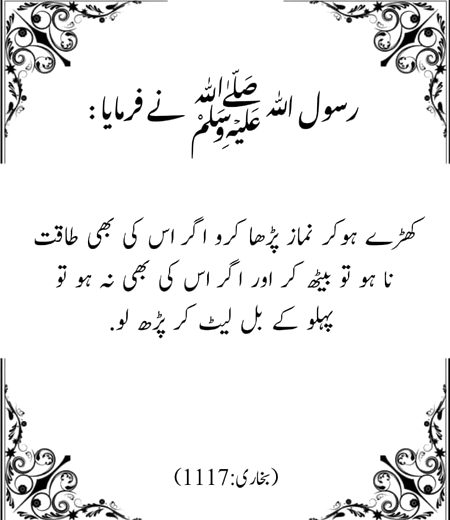 رسول اللہ ﷺ نے فرمایا:
کھڑے ہوکر نماز پڑھا کرو اگر اس کی بھی طاقت
نا ہو تو بیٹھ کر اور اگر اس کی بھی نہ ہو تو
پہلو کے بل لیٹ کر پڑھ لو.
(بخاری:1117)